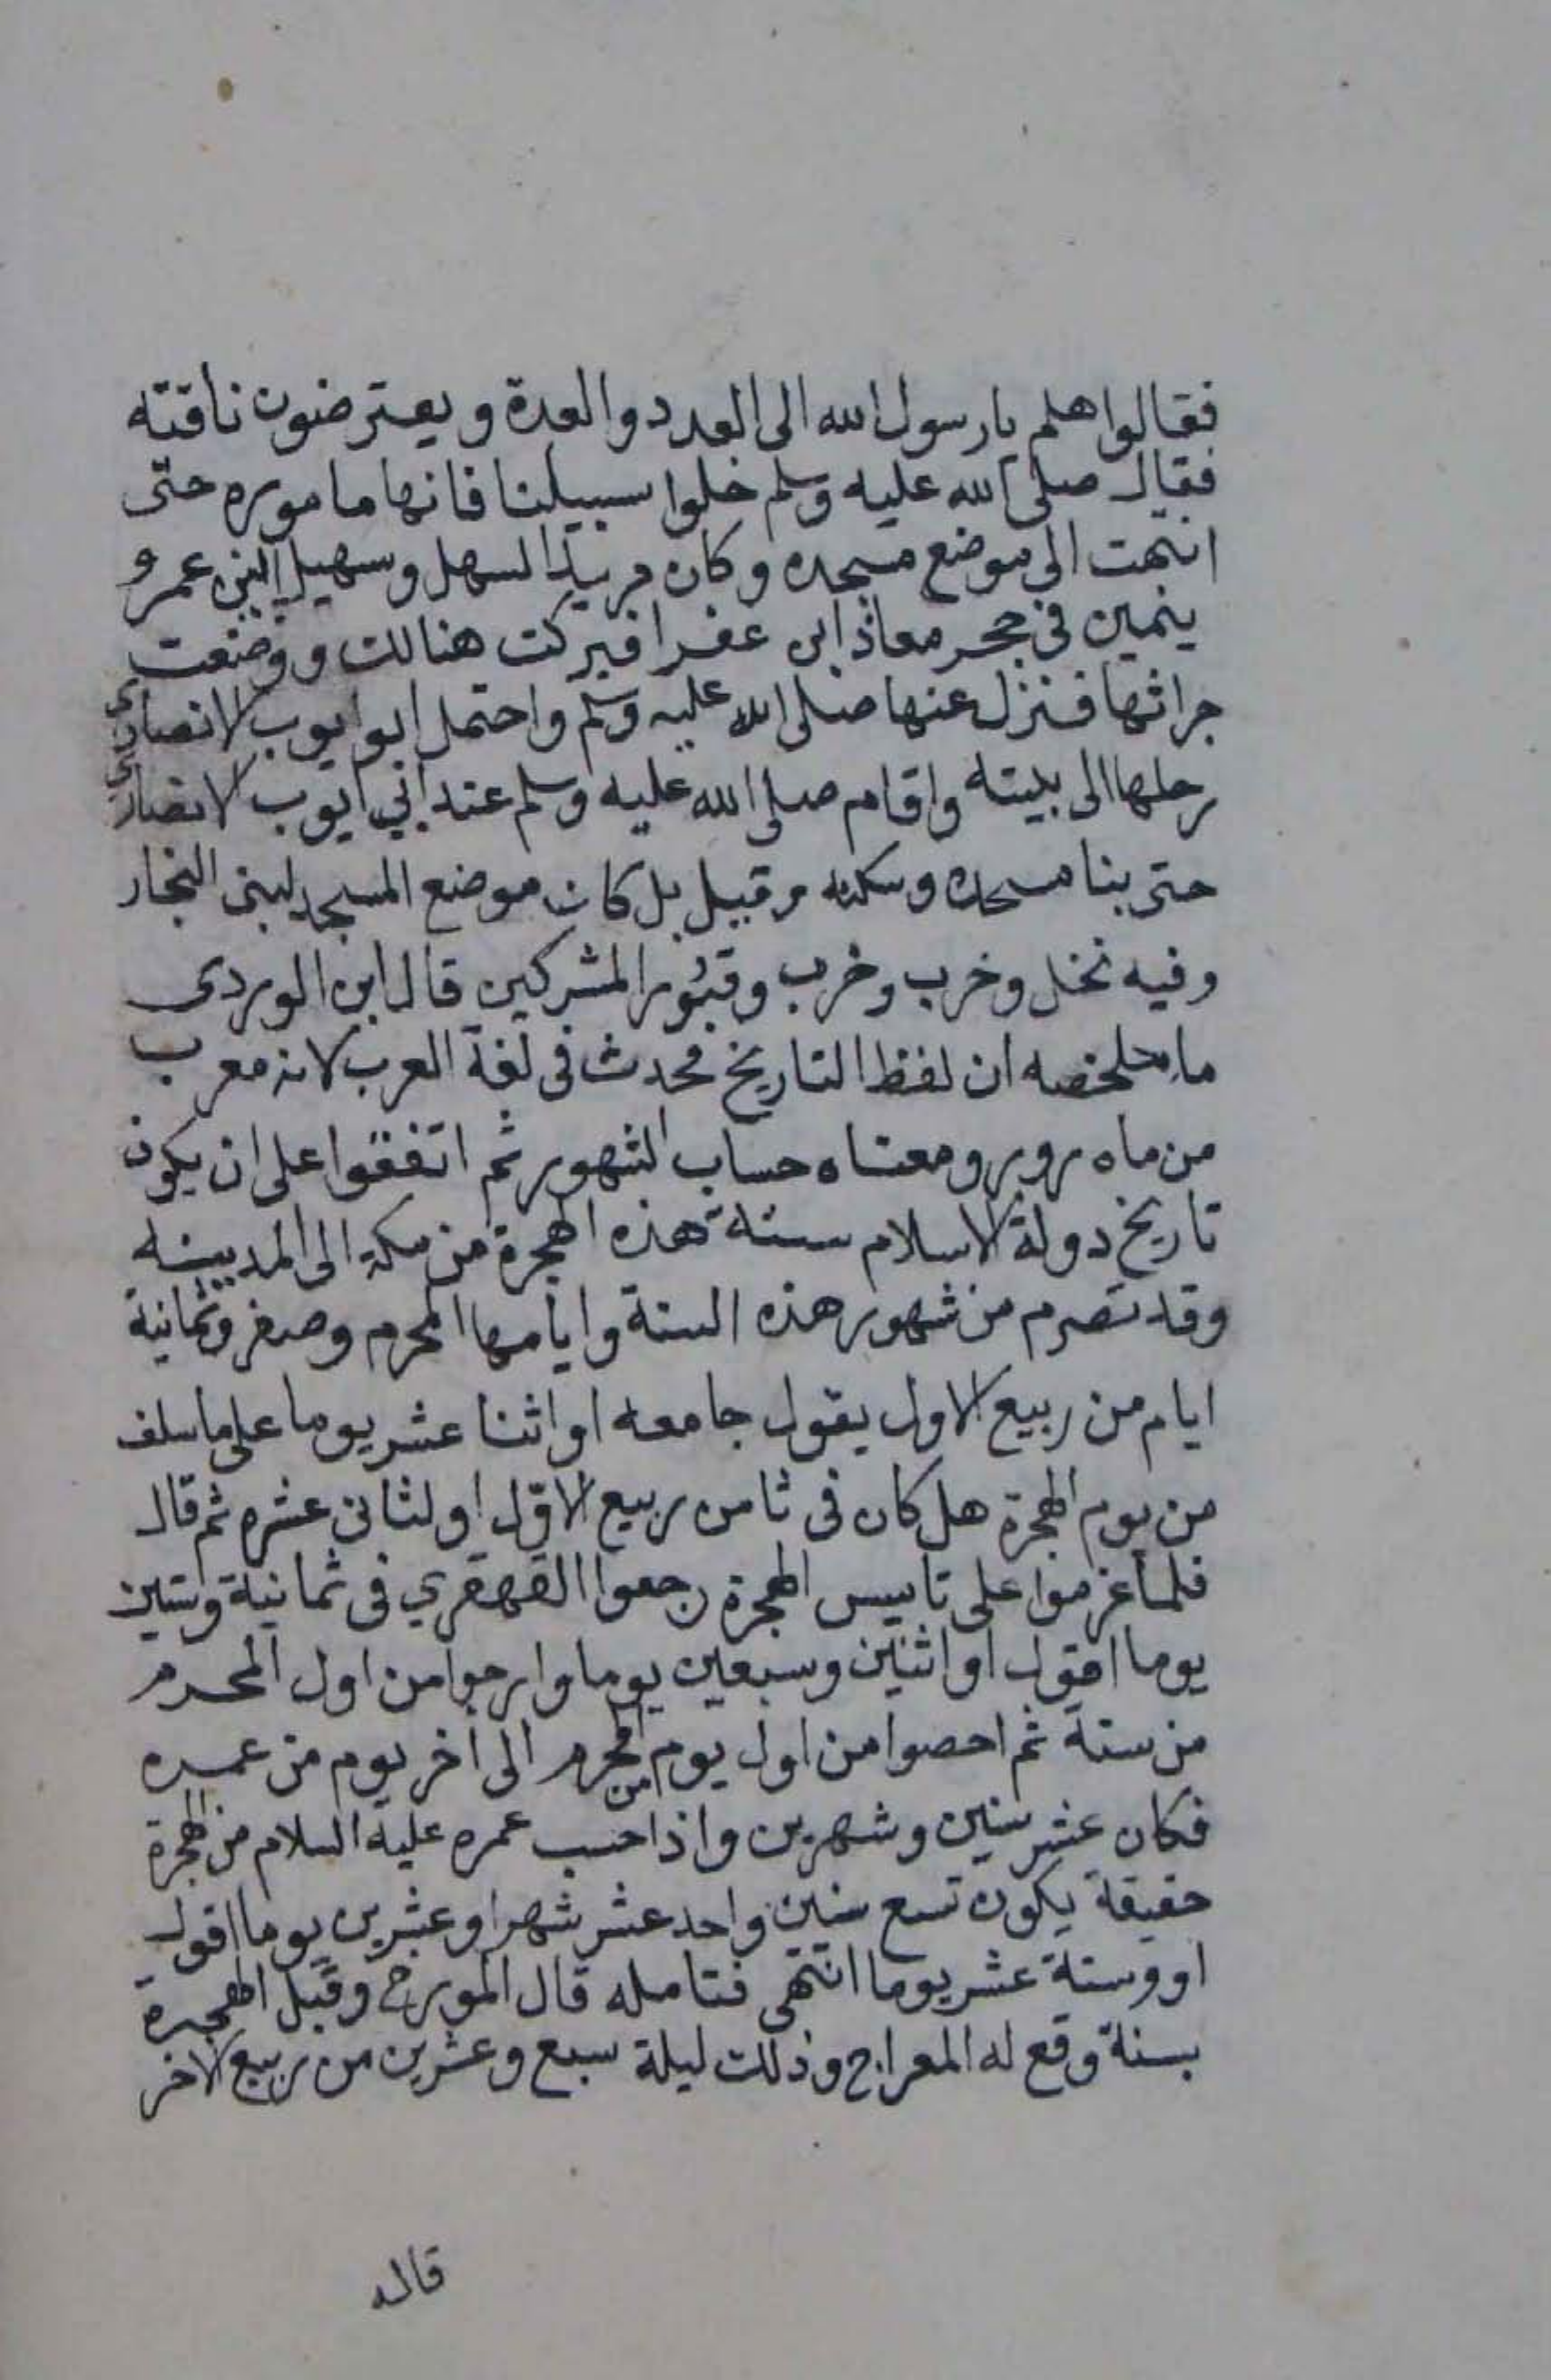 فقالوا هلم يا رسول الله الى العدد والعدة ويعترضون ناقته
فقال صلى الله عليه وسلم خلوا سبيلنا فانها ماموره حتى
انتهت الى موضع مسجده وكان مربدا لسهل وسهيل ابني عمرو
يتمين في حجر معاذ ابن عفرا فبركت هنالك ووضعت
جرانها فنزل عنها صلى الله عليه وسلم واحتمل ابو ايوب الانصاري
رحلها الى بيته واقام صلى الله عليه وسلم عند ابي ايوب الانصاري
حتى بنا مسجده وسكنه وقيل بل كان موضع المسجد لبني النجار
وفيه نخل وخرب وخرب وقبور المشركين قال ابن الوردي
ما ملخصه ان لفظ التاريخ محدث في لغة العرب لانه معرب
من ماه روبر ومعناه حساب الشهور ثم اتفقوا على ان يكون
تاريخ دولة الاسلام سنة هذه الهجرة من مكة الى المدينه
وقد تصرم من شهور هذه السنة وايامها المحرم وصفر وثمانية
ايام من ربيع الاول يقول جامعه او اثنا عشر يوما على ما سلف
من يوم الهجرة هل كان في ثامن ربيع الاول او لثاني عشره ثم قال
فلما عزموا على تاسيس الهجرة رجعوا القهقري في ثمانية وستين
يوما اقول او اثنين وسبعين يوما وارخوا من اول المحرم
من سنة ثم احصوا من اول يوم من المحرم الى اخر يوم من عمره
فكان عشر سنين وشهرين واذا حسب عمره عليه السلام من الهجرة
حقيقة يكون تسع سنين واحد عشر شهرا وعشرين يوما اقول
او وستة عشر يوما انتهى فتامله قال المورخ وقبل الهجرة
بسنة وقع له المعراج وذلك ليلة سبع وعشرين من ربيع الاخر
قال